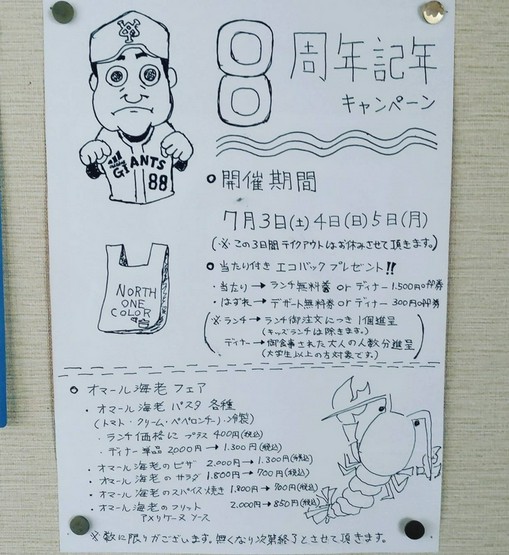 YG
GIANTS
88
8
周年記年
キャンペーン
○ 開催期間
7月3日(土)4日(日)5日(月)
(※この3日間テイクアウトはお休みさせて頂きます。)
○ 当たり付き エコバック プレゼント!!
・当たり→ランチ無料券 or ディナー1.500円OFF券
・はずれ→デザート無料券 or ディナー300円OFF券
(※ランチ→ランチ御注文につき1個進呈
(キッズランチは除きます。)
ディナー→御食事された大人の人数分進呈
(大学生以上の方対象です。)
NORTH
ONE
COLOR
○ オマール海老フェア
・オマール海老 パスタ 各種
(トマト・クリーム・ペペロンチーノ・冷製)
ランチ価格に プラス 400円(税込)
ディナー単品 2,000円→1.300円(税込)
・オマール海老のピザ 2.000円→1.300円(税込)
・オマール海老のサラダ 1.800円→900円(税込)
・オマール海老のスパイス焼き 1.800円→900円(税込)
・オマール海老のフリット 2.000円→850円(税込)
アメリケーヌソース
※数に限りがございます。無くなり次第終了とさせて頂きます。